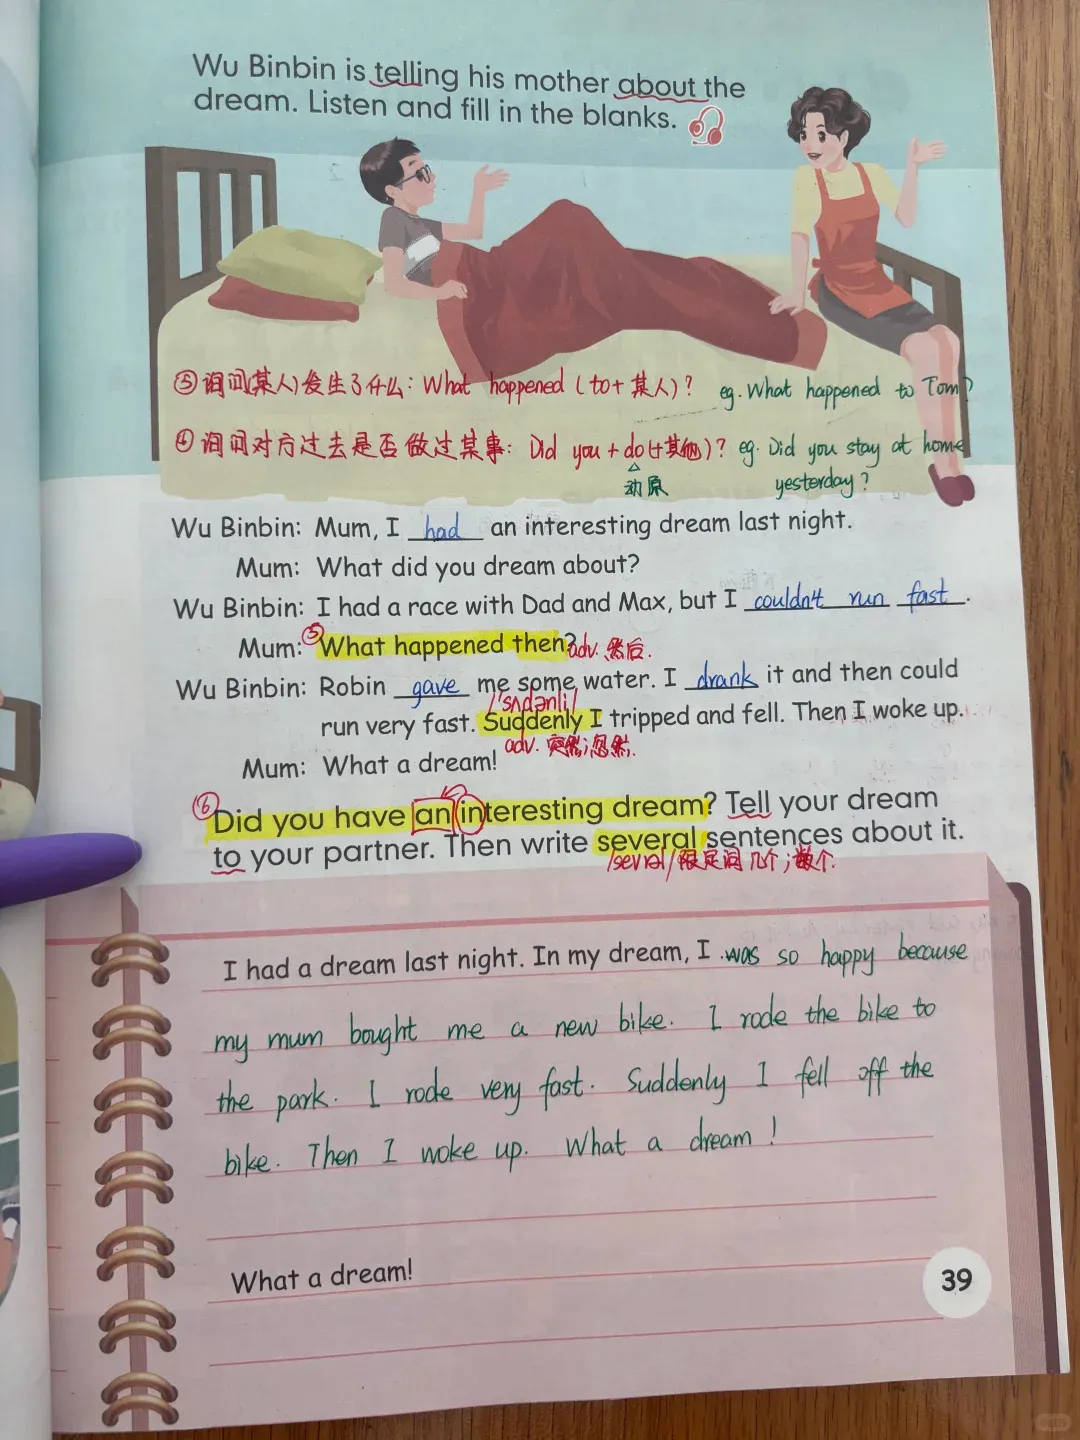 Wu Binbin is telling his mother about the
dream. Listen and fill in the blanks.
⑤ 询问(某人)发生了什么: What happened (to+某人)? eg. What happened to Tom?
⑥ 询问对方过去是否做过某事: Did you + do(+其他)? eg. Did you stay at home
动原 yesterday?
Wu Binbin: Mum, I had an interesting dream last night.
Mum: What did you dream about?
Wu Binbin: I had a race with Dad and Max, but I couldn't run fast.
Mum: ⑤ What happened then? adv. 然后.
Wu Binbin: Robin gave me some water. I drank it and then could
/'sʌdənli/
run very fast. Suddenly I tripped and fell. Then I woke up.
adv. 突然;忽然.
Mum: What a dream!
⑥ Did you have an interesting dream? Tell your dream
to your partner. Then write several sentences about it.
/sevrəl/ 限定词 几个;数个.
I had a dream last night. In my dream, I was so happy because
my mum bought me a new bike. I rode the bike to
the park. I rode very fast. Suddenly I fell off the
bike. Then I woke up. What a dream!
What a dream!
39